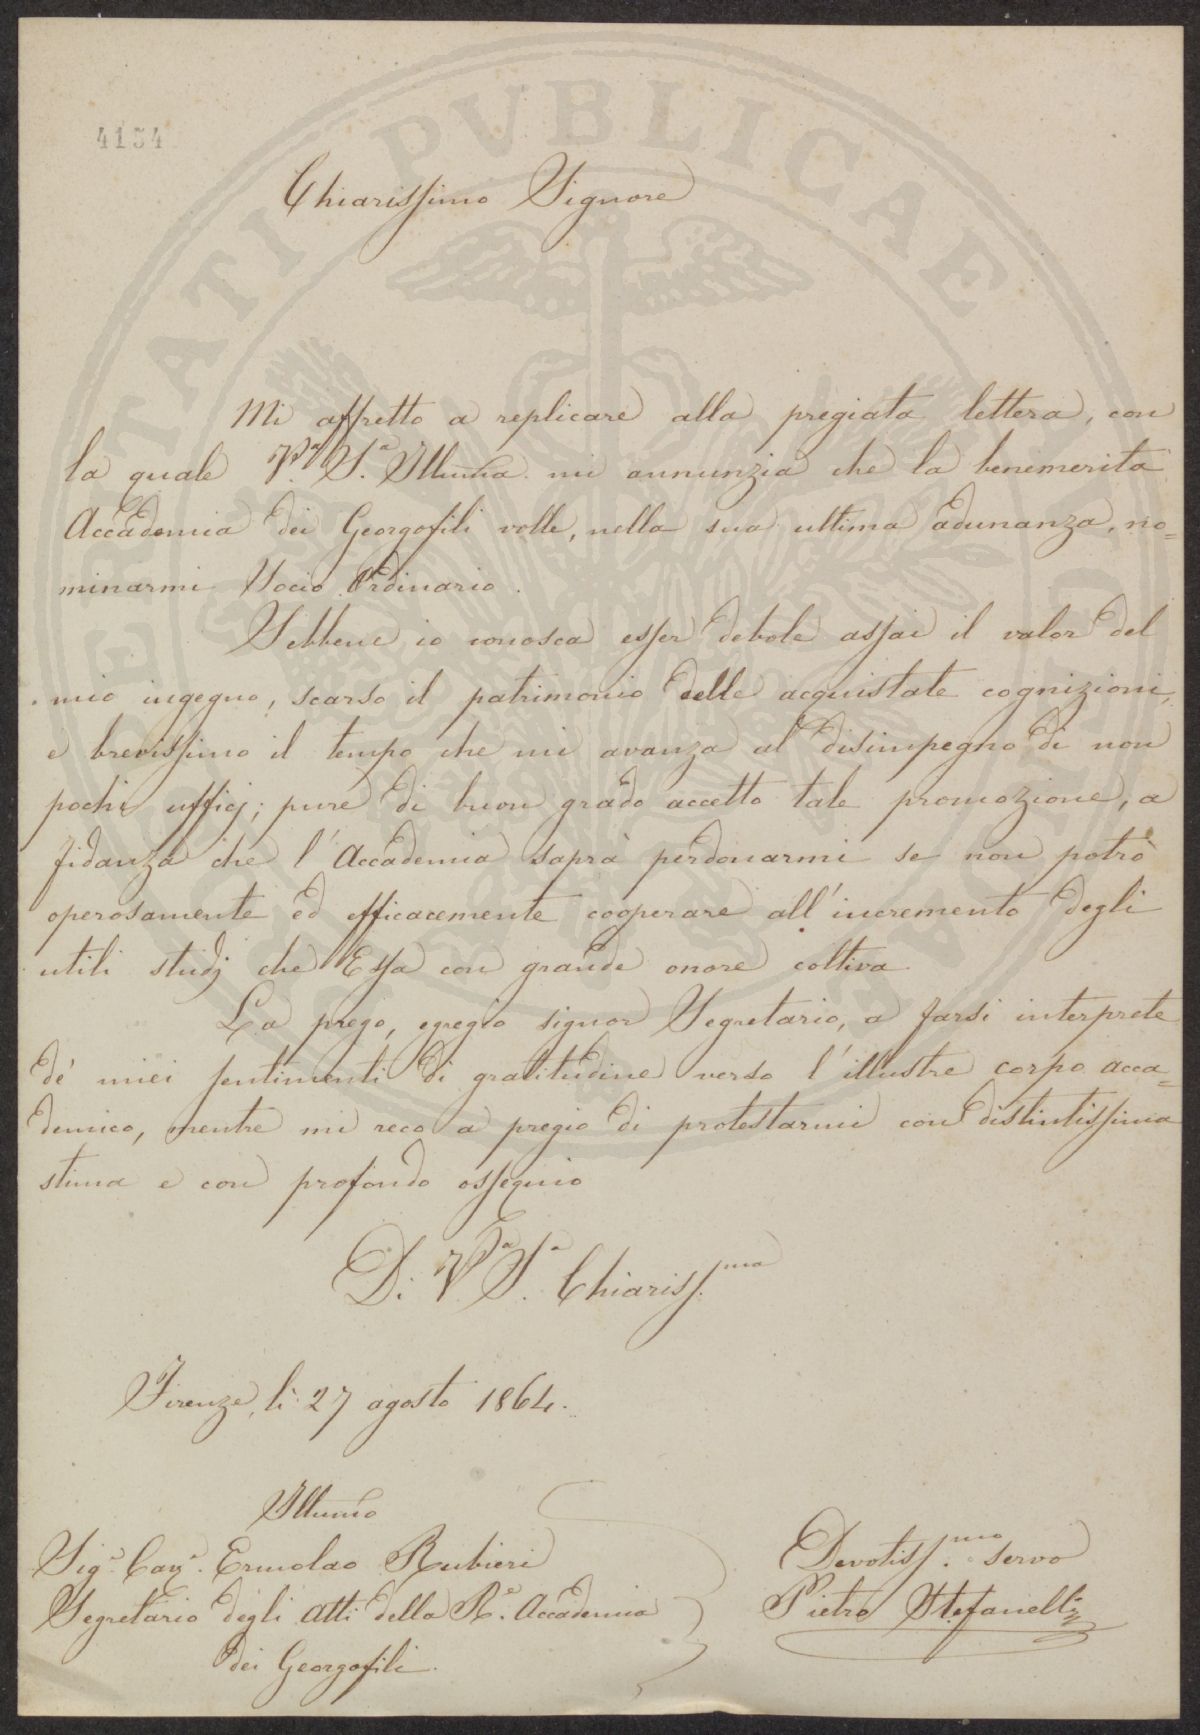 4134
Chiarissimo Signore
Mi affretto a replicare alla pregiata lettera, con
la quale V.ª S.ª Illuma mi annunzia che la benemerita
Accademia dei Georgofili volle, nella sua ultima adunanza, no=
minarmi Socio Ordinario.
Sebbene io conosca esser debole assai il valor del
mio ingegno, scarso il patrimonio delle acquistate cognizioni,
e brevissimo il tempo che mi avanza al disimpegno di non
pochi ufficj; pure di buon grado accetto tale promozione, a
fidanza che l'Accademia saprà perdonarmi se non potrò
operosamente ed efficacemente cooperare all'incremento degli
utili studj che Essa con grande onore coltiva
La prego, egregio signor Segretario, a farsi interprete
de' miei sentimenti di gratitudine verso l'illustre corpo acca=
demico, mentre mi reco a pregio di protestarmi con distintissima
stima e con profondo ossequio
Di V.ª S.ª Chiariss.ma
Firenze, li 27 agosto 1864.
Illumo
Sig.r Cav.r Ermolao Rubieri
Segretario degli Atti della R.e Accademia
dei Georgofili.
Devotiss.mo servo
Pietro Stefanelli